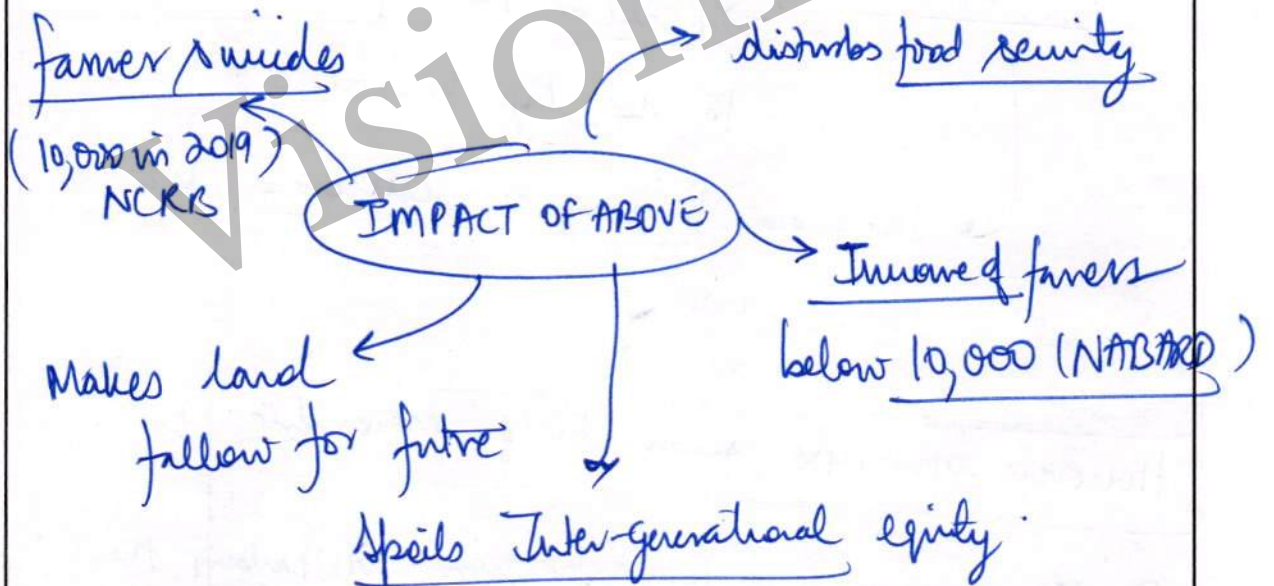 farmer suicides
(10,000 in 2019)
NCRB
disturbs food security
IMPACT OF ABOVE
Income of farmers
below 10,000 (NABARD)
Makes land
fallow for future
Spoils Inter-generational equity.
Vision